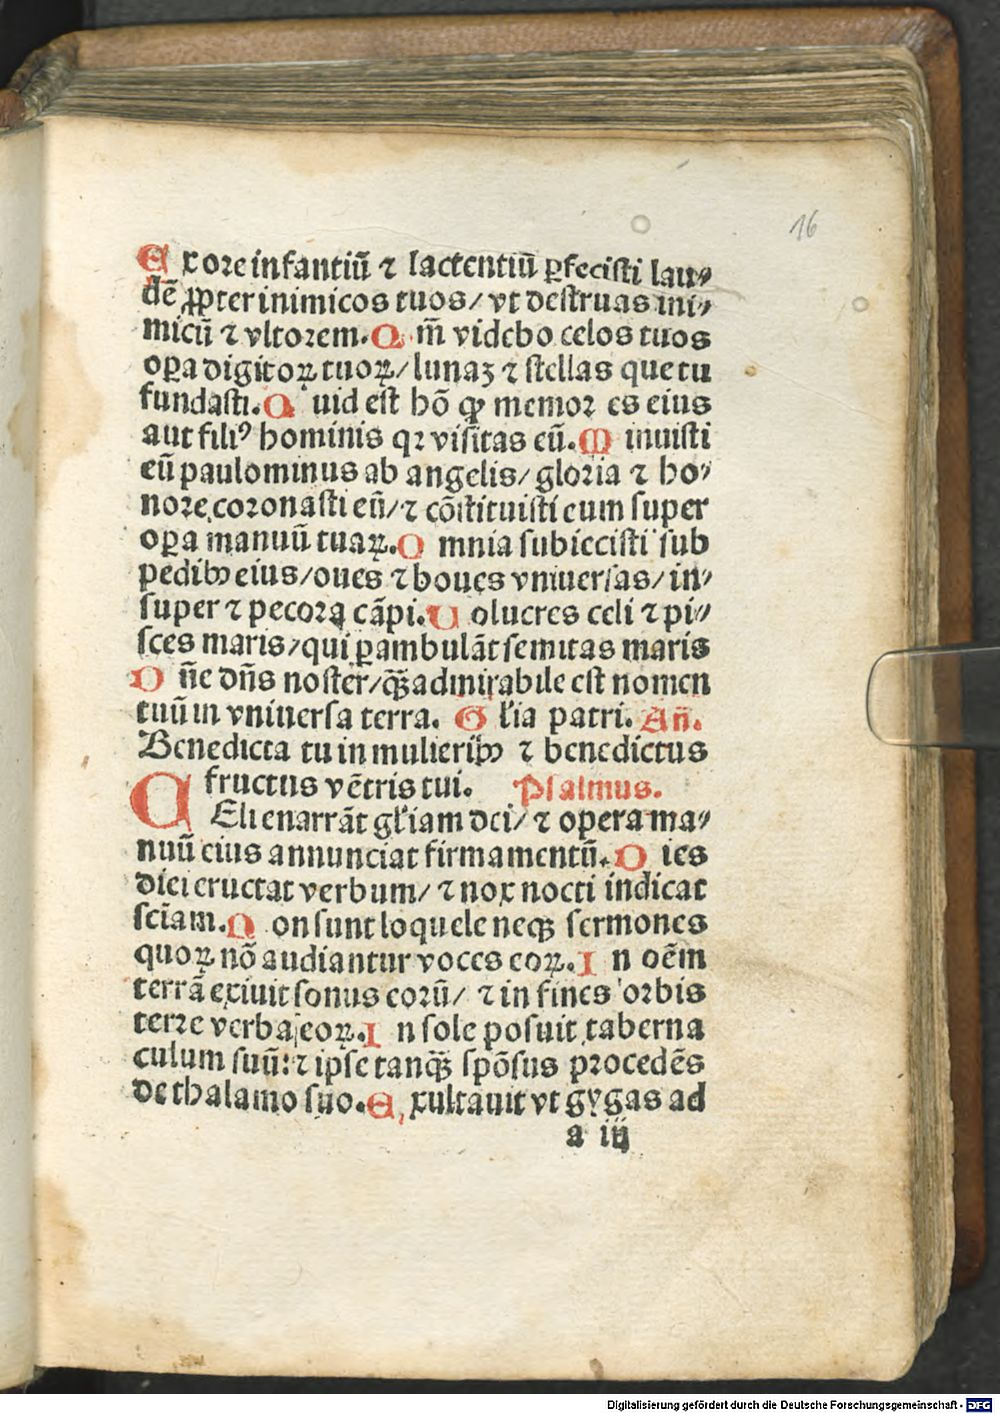 16
Ex ore infantiū ⁊ lactentiū ꝑfecisti lau⸗
dē ꝓpter inimicos tuos/ vt destruas ini⸗
micū ⁊ vltorem. Qm̄ videbo celos tuos
oꝑa digitoꝝ tuoꝝ/ lunaꝫ ⁊ stellas que tu
fundasti. Quid est hō ꝙ memor es eius
aut filiꝰ hominis qꝛ visitas eū. Minuisti
eū paulominus ab angelis/ gloria ⁊ ho⸗
nore coronasti eū/ ⁊ cōstituisti eum super
oꝑa manuū tuaꝝ. Omnia subiecisti sub
pedibꝰ eius/ oues ⁊ boues vniuersas/ in⸗
super ⁊ pecora cāpi. Uolucres celi ⁊ pi⸗
sces maris/ qui ꝑambulāt semitas maris
Dn̄e dn̄s noster/ q̄ꝫ admirabile est nomen
tuū in vniuersa terra. Gl'ia patri. An̄.
Benedicta tu in mulieribꝰ ⁊ benedictus
fructus vētris tui. Psalmus.
CEli enarrāt gl'iam dei/ ⁊ opera ma⸗
nuū eius annunciat firmamentū. Dies
diei eructat verbum/ ⁊ nox nocti indicat
sciām. Non sunt loquele neqꝫ sermones
quoꝝ nō audiantur voces eoꝝ. In oēm
terrā exiuit sonus eorū/ ⁊ in fines orbis
terre verba eoꝝ. In sole posuit taberna
culum suū: ⁊ ipse tanq̄ꝫ spōsus procedēs
de thalamo suo. Exultauit vt gygas ad
a iij
Digitalisierung gefördert durch die Deutsche Forschungsgemeinschaft - DFG